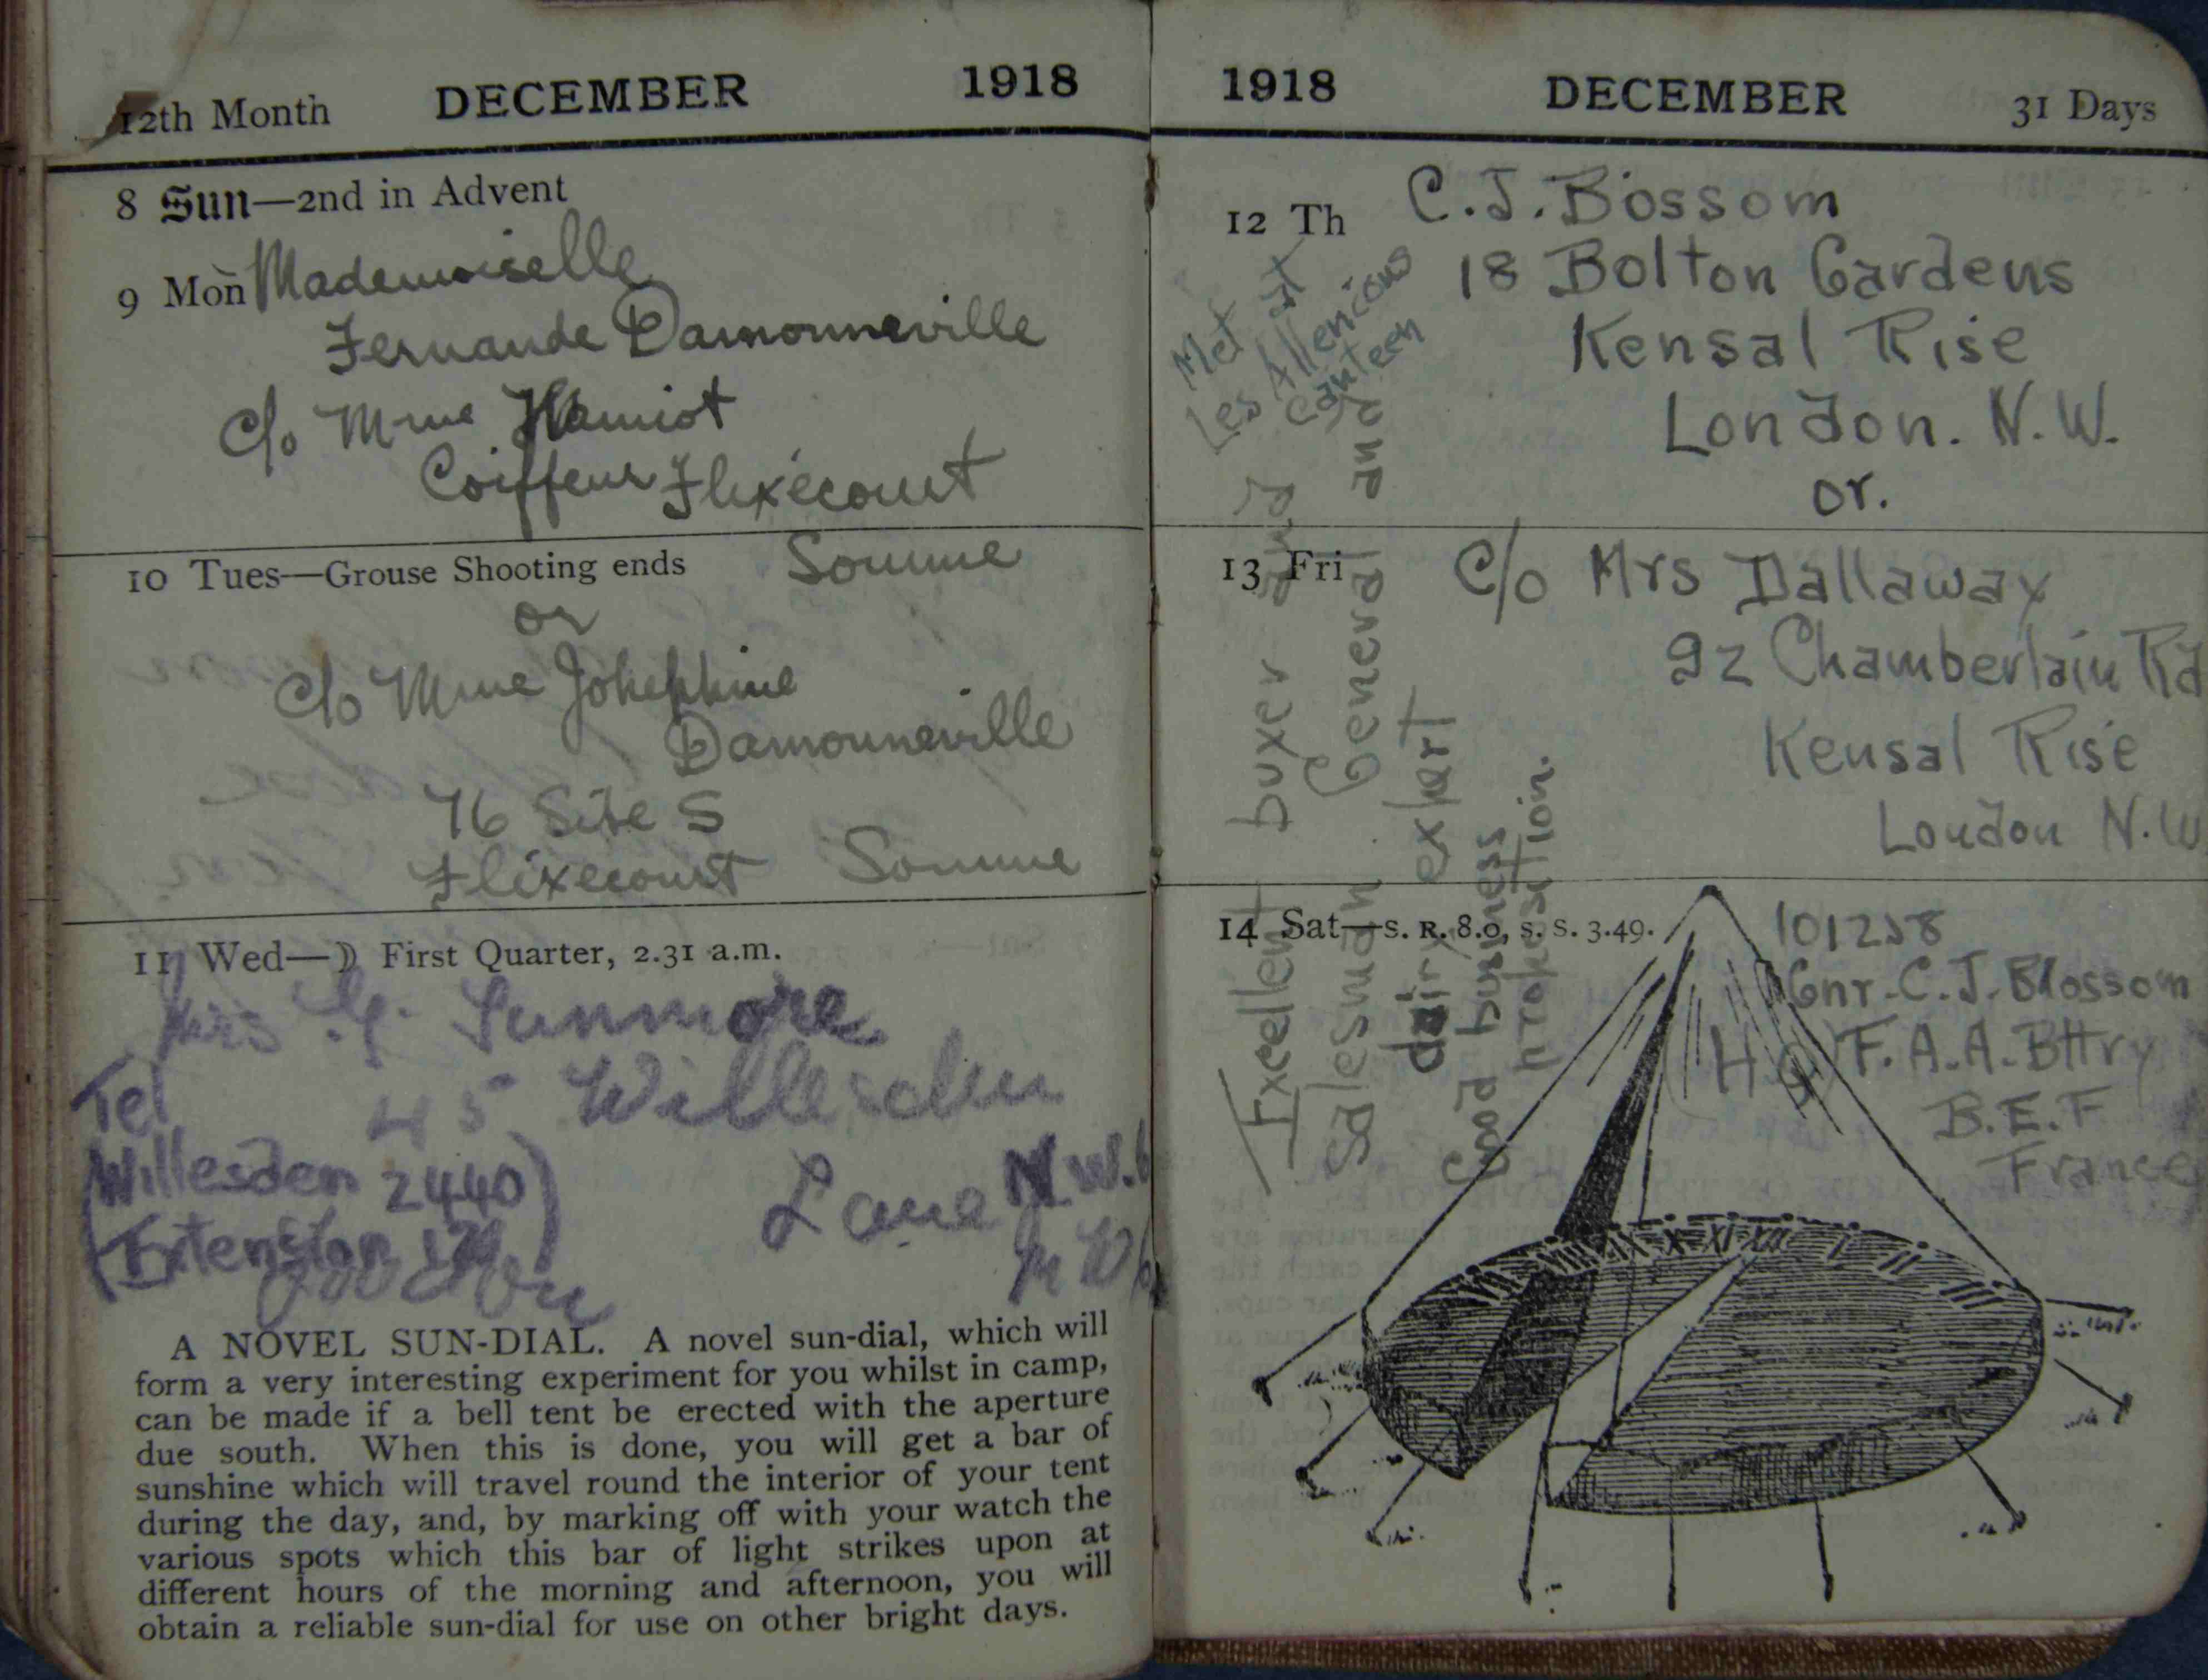 12th Month DECEMBER 1918
8 Sun—2nd in Advent
9 Mon Mademoiselle
Fernande Damonneville
c/o Mme Hamiot
Coiffeur Flixécourt
10 Tues—Grouse Shooting ends Somme
or
c/o Mme Johephine
Damonneville
76 Site S
Flixecourt Somme
11 Wed—☽ First Quarter, 2.31 a.m.
Mrs G. Lunmore
45 Willesden
Lane N.W.6
N W 6
Tel
(Willesden 2440)
(Extension
London
A NOVEL SUN-DIAL. A novel sun-dial, which will
form a very interesting experiment for you whilst in camp,
can be made if a bell tent be erected with the aperture
due south. When this is done, you will get a bar of
sunshine which will travel round the interior of your tent
during the day, and, by marking off with your watch the
various spots which this bar of light strikes upon at
different hours of the morning and afternoon, you will
obtain a reliable sun-dial for use on other bright days.
1918 DECEMBER 31 Days
12 Th C.J. Bossom
18 Bolton Gardens
Kensal Rise
London. N.W.
or.
Met at
Les Allencons
Canteen
13 Fri C/o Mrs Dallaway
92 Chamberlain Rd
Kensal Rise
London N.W
14 Sat—S. R. 8.0, S. S. 3.49.
101258
Gnr. C. J. Blossom
(H.Q) F. A. A. Bttry
B. E. F
France
Excellent buyer and
salesman. General and
dairy expert
Good business
VII VIII IX X XI XII I II III